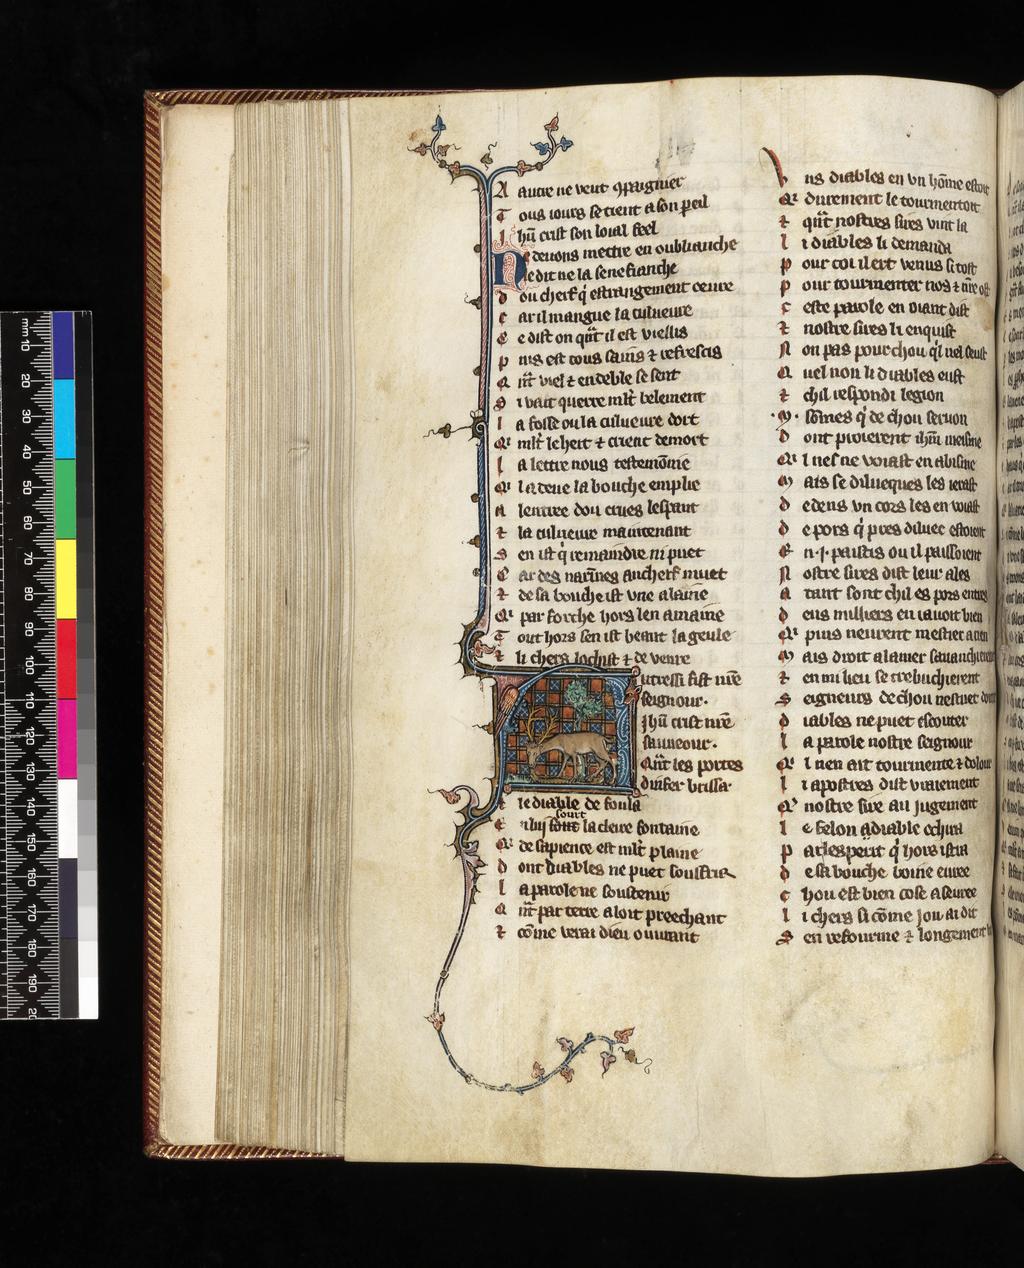 A autre ne veut cpaignier
T ous iours se tient a son peil
I hu crist son loial feel
N e deuons mettre en oubliauche
e dit ne la senefianche
d ou cherf q estrangement oeure
c ar il mangue la culueure
C e dist on qnt il est viellis
p uis est tous sains ⁊ refrescis
Q nt viel ⁊ endeble se sent
S i vait querre mlt belement
l a fosse ou la culueure dort
Qr mlt le heit ⁊ crient de mort
l a lettre nous testemoine
Qr la deue la bouche emplie
A lentree dou crues lespant
⁊ la culueure maintenant
S en ist q remaindre ni puet
C ar des narines au cherf muet
⁊ de sa bouche ist vne alaine
Qr par forche hors len amaine
T out hors sen ist beant la geule
⁊ li chers lochist ⁊ de veure
utressi fist nre
seignour.
Ihu crist nre
sauueour.
Qnt les portes
dinfer brissa
⁊ le diable de foula
sourt
C n lui la clere fontaine
Qr de sapience est mlt plaine
d ont diables ne puet souffrir
l a parole ne soustenir
Q nt par terre aloit preechant
⁊ come verai dieu ouurant
V ns diables en vn home estoit
Qr durement le tourmentoit
⁊ qnt nostres sires vint la
l i diables li demanda
p our coi il ert venus si tost
p our tourmenter nos ⁊ nre ost
C este parole en oiant dist
⁊ nostre sires li enquist
N on pas pour chou ql nel seust
Q uel non li diables eust
⁊ chil respondi legion
.M. somes q de chou seruon
d ont proierent ihu meisme
Qr l nes ne voiast en abisme
M ais se dilueques les ietast
d edens vn cors les enuoiast
d e pors q pres diluec estoient
E n .i. pastis ou il paissoient
N ostre sires dist leur ales
a tant sont chil es pors entres
d eus milliers en i auoit bien
Qr puis neurent mestier a rien
M ais droit a la mer sauanchierent
⁊ en mi lieu se trebuchierent
S eigneurs de chou nestuet
d iables ne puet escouter
l a parole nostre seignour
Qr l nen ait tourmente ⁊ dolour
l i apostres dist vraiement
Qr nostre sire au iugement
l e felon adiable ochira
p ar lesperit q hors istra
d e sa bouche boine euree
C hou est bien cose aseuree
l i chers si come iou ai dit
S en refourme ⁊ longement